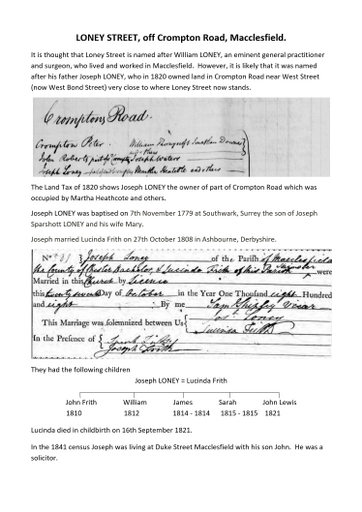 LONEY STREET, off Crompton Road, Macclesfield.
It is thought that Loney Street is named after William LONEY, an eminent general practitioner
and surgeon, who lived and worked in Macclesfield. However, it is likely that it was named
after his father Joseph LONEY, who in 1820 owned land in Crompton Road near West Street
(now West Bond Street) very close to where Loney Street now stands.
Cromptons Road.
Crompton Peter
John Roberts
Joseph Loney
The Land Tax of 1820 shows Joseph LONEY the owner of part of Crompton Road which was
occupied by Martha Heathcote and others.
Joseph LONEY was baptised on 7th November 1779 at Southwark, Surrey the son of Joseph
Sparshott LONEY and his wife Mary.
Joseph married Lucinda Frith on 27th October 1808 in Ashbourne, Derbyshire.
Joseph Loney of the Parish of Macclesfield
the County of Chester Bachelor, & Lucinda Frith of this Parish were
Married in this Church by Licence
this Day of October in the Year One Thousand eight Hundred
and eight By me Vicar
This Marriage was solemnized between Us Loney
Lucinda Frith
In the Presence of
They had the following children
Joseph LONEY = Lucinda Frith
John Frith William James Sarah John Lewis
1810 1812 1814 - 1814 1815 - 1815 1821
Lucinda died in childbirth on 16th September 1821.
In the 1841 census Joseph was living at Duke Street Macclesfield with his son John. He was a
solicitor.